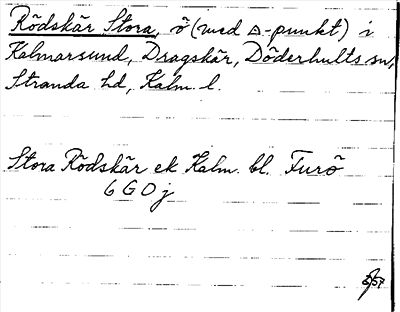 Rödskär Stora, ö (med △-punkt) i
Kalmarsund, Dragskär, Döderhults sn,
Stranda hd, Kalm. l.
Stora Rödskär ek Kalm. bl. Furö
6 G 0 j